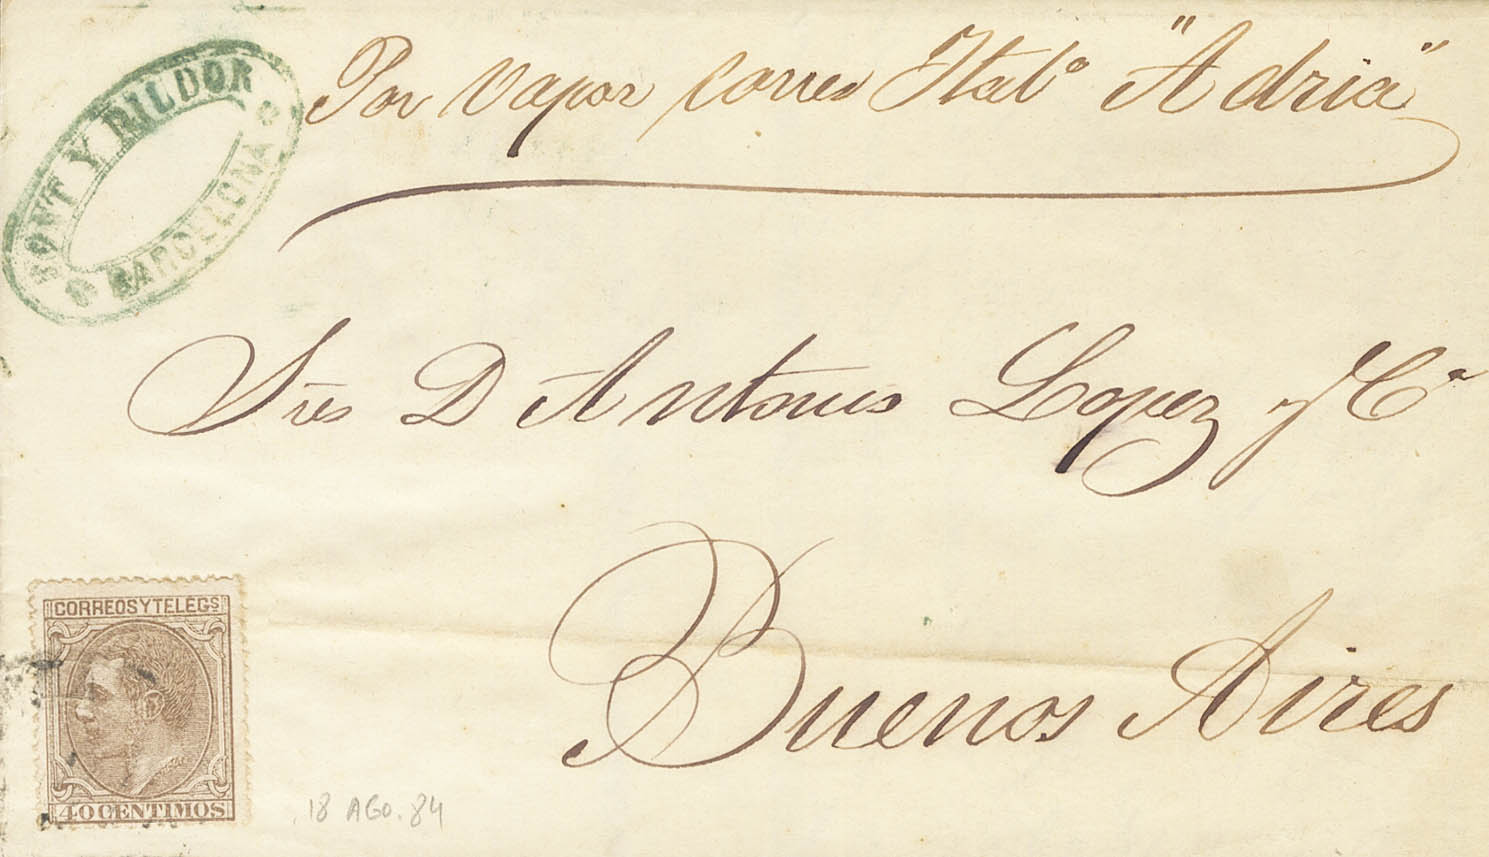 Por vapor correo Ital° "Adria"
Y RILDOR
BARCELONA
Sres D Antonio Lopez y Cª
Buenos Aires
CORREOS Y TELEGS
40 CENTIMOS
18 AGO. 84